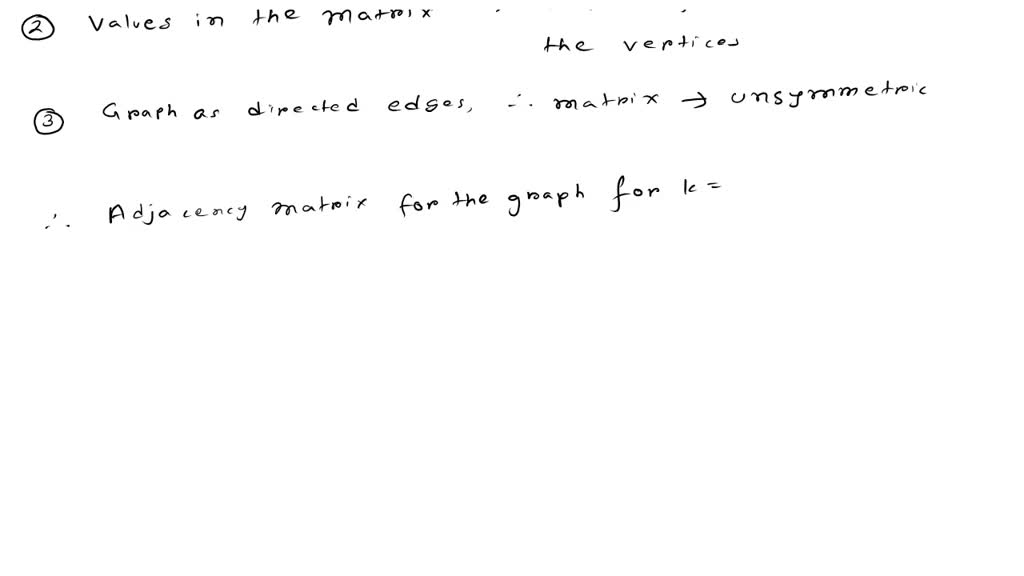 ② Values in the matrix
the vertices
③ Graph as directed edges, ∴ matrix → unsymmetric
∴ Adjacency matrix for the graph for k =